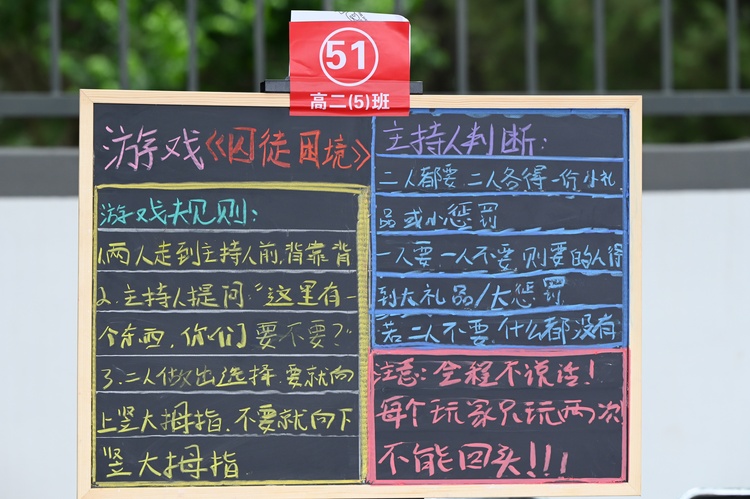 51
高二(5)班
游戏《囚徒困境》
游戏规则:
1.两人走到主持人前,背靠背
2.主持人提问“这里有一
个东西,你们要不要?”
3.二人做出选择,要就向
上竖大拇指,不要就向下
竖大拇指.
主持人判断:
二人都要,二人各得一份小礼
品或小惩罚
一人要,一人不要,则要的人得
到大礼品/大惩罚
若二人不要,什么都没有
注意:全程不说话!
每个玩家只玩两次
不能回头!!!